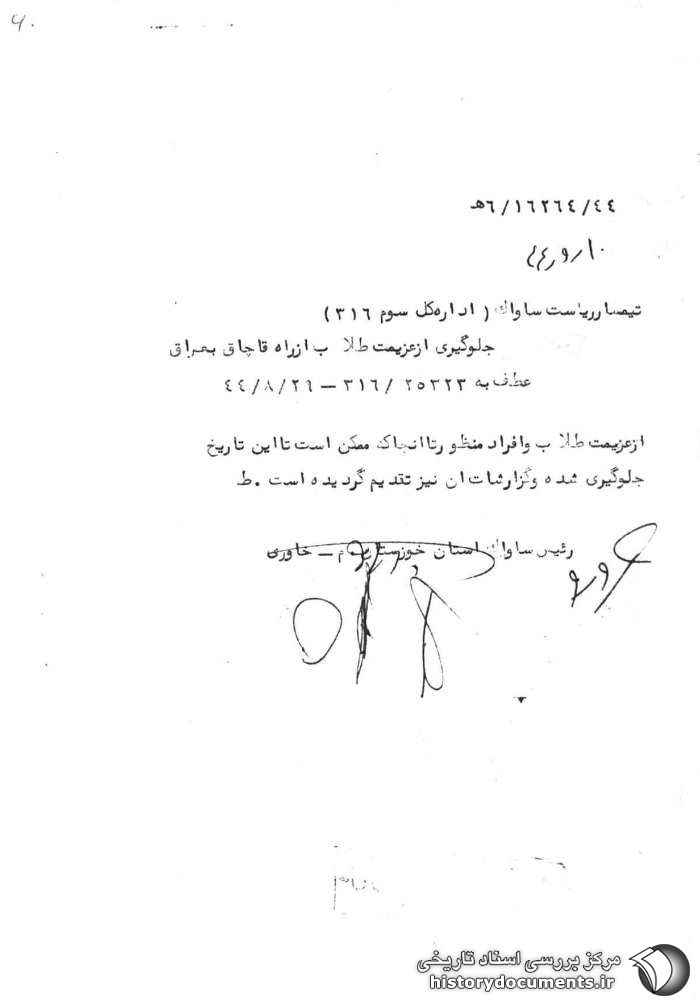 ۶/۱۶۲۶۴/۴۴ه‍
تیمسار ریاست ساواک ( اداره کل سوم ۳۱۶ )
جلوگیری از عزیمت طلاب از راه قاچاق بعراق
عطف به ۲۵۳۲۳ /۳۱۶ – ۴۴/۸/۲۹
از عزیمت طلاب و افراد منظور تا انجا که ممکن است تا این تاریخ
جلوگیری شده و گزارشات ان نیز تقدیم گردیده است . ط
رئیس ساواک استان خوزستان م – خاوری
مرکز بررسی اسناد تاریخی
historydocuments.ir